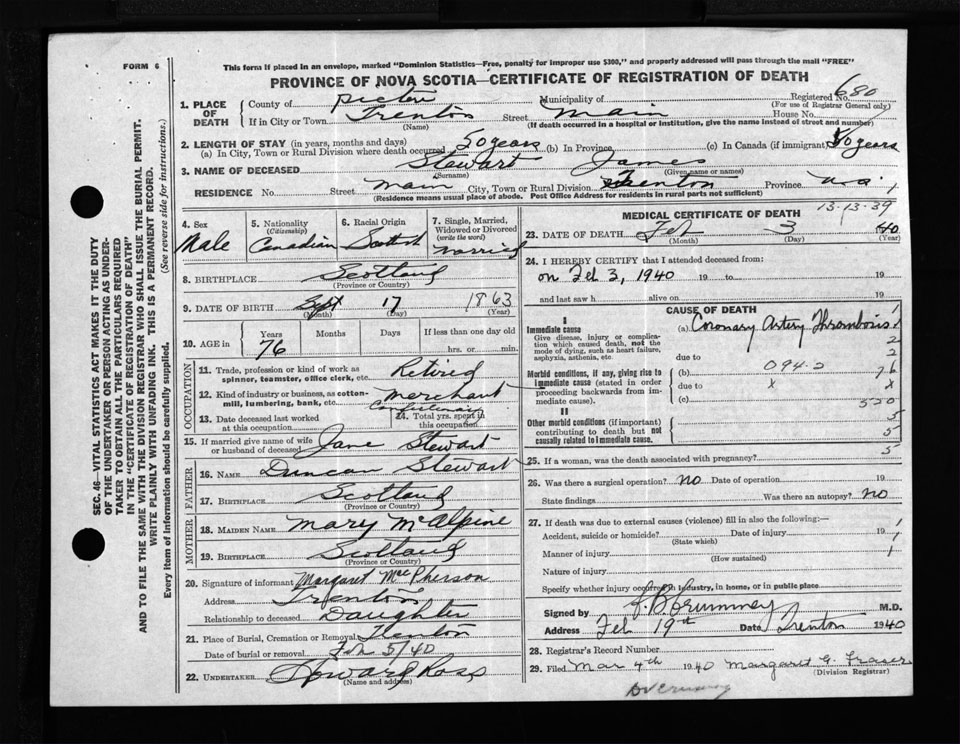 FORM 6
This form if placed in an envelope, marked "Dominion Statistics—Free, penalty for improper use $300," and properly addressed will pass through the mail "FREE"
PROVINCE OF NOVA SCOTIA—CERTIFICATE OF REGISTRATION OF DEATH
Registered No. 680
(For use of Registrar General only)
1. PLACE OF DEATH
County of Pictou Municipality of
If in City or Town Trenton Street Main House No.
(Name) (If death occurred in a hospital or institution, give the name instead of street and number)
2. LENGTH OF STAY (in years, months and days)
(a) In City, Town or Rural Division where death occurred 50 years (b) In Province (c) In Canada (if immigrant) 50 years
3. NAME OF DECEASED Stewart James
(Surname) (Given name or names)
RESIDENCE No. Street Main City, Town or Rural Division Trenton Province N.S.
(Residence means usual place of abode. Post Office Address for residents in rural parts not sufficient)
4. Sex
Male
5. Nationality
(Citizenship)
Canadian
6. Racial Origin
Scottish
7. Single, Married, Widowed or Divorced
(write the word)
Married
8. BIRTHPLACE Scotland
(Province or Country)
9. DATE OF BIRTH Sept 17 1863
(Month) (Day) (Year)
10. AGE in
Years Months Days If less than one day old
76 hrs. or min.
OCCUPATION
11. Trade, profession or kind of work as spinner, teamster, office clerk, etc. Retired
12. Kind of industry or business, as cotton-mill, lumbering, bank, etc. Merchant
Confectionary
13. Date deceased last worked at this occupation
14. Total yrs. spent in this occupation
15. If married give name of wife or husband of deceased Jane Stewart
FATHER
16. NAME Duncan Stewart
17. BIRTHPLACE Scotland
(Province or Country)
MOTHER
18. MAIDEN NAME Mary McAlpine
19. BIRTHPLACE Scotland
(Province or Country)
20. Signature of informant Margaret MacPherson
Address Trenton
Relationship to deceased Daughter
21. Place of Burial, Cremation or Removal Trenton
Date of burial or removal Feb 5/40
22. UNDERTAKER Howard Ross
(Name and address)
13-13-39
MEDICAL CERTIFICATE OF DEATH
23. DATE OF DEATH Feb 3 1940
(Month) (Day) (Year)
24. I HEREBY CERTIFY that I attended deceased from:
on Feb 3, 1940 19 to 19
and last saw h alive on 19
CAUSE OF DEATH
I
Immediate cause
Give disease, injury or complication which caused death, not the mode of dying, such as heart failure, asphyxia, asthenia, etc.
(a) Coronary Artery Thrombosis
due to
Morbid conditions, if any, giving rise to immediate cause (stated in order proceeding backwards from immediate cause).
(b) 094-2
due to x x
(c)
1
2
2
76
520
5
5
5
II
Other morbid conditions (if important) contributing to death but not causally related to immediate cause.
25. If a woman, was the death associated with pregnancy?
26. Was there a surgical operation? No Date of operation 19
State findings Was there an autopsy? No
27. If death was due to external causes (violence) fill in also the following:—
Accident, suicide or homicide? Date of injury 19
(State which)
Manner of injury
(How sustained)
Nature of injury
Specify whether injury occurred in industry, in home, or in public place
1
1
Signed by J. B. Crummey M.D.
Address Feb 19th Date Trenton 1940
28. Registrar's Record Number
29. Filed Mar 4th 1940 Margaret G. Fraser
(Division Registrar)
Dr Crummey
SEC. 46—VITAL STATISTICS ACT MAKES IT THE DUTY
OF THE UNDERTAKER OR PERSON ACTING AS UNDER-
TAKER TO OBTAIN ALL THE PARTICULARS REQUIRED
IN THE "CERTIFICATE OF REGISTRATION OF DEATH"
AND TO FILE THE SAME WITH THE DIVISION REGISTRAR WHO SHALL ISSUE THE BURIAL PERMIT.
WRITE PLAINLY WITH UNFADING INK. THIS IS A PERMANENT RECORD.
Every item of information should be carefully supplied. (See reverse side for instructions.)